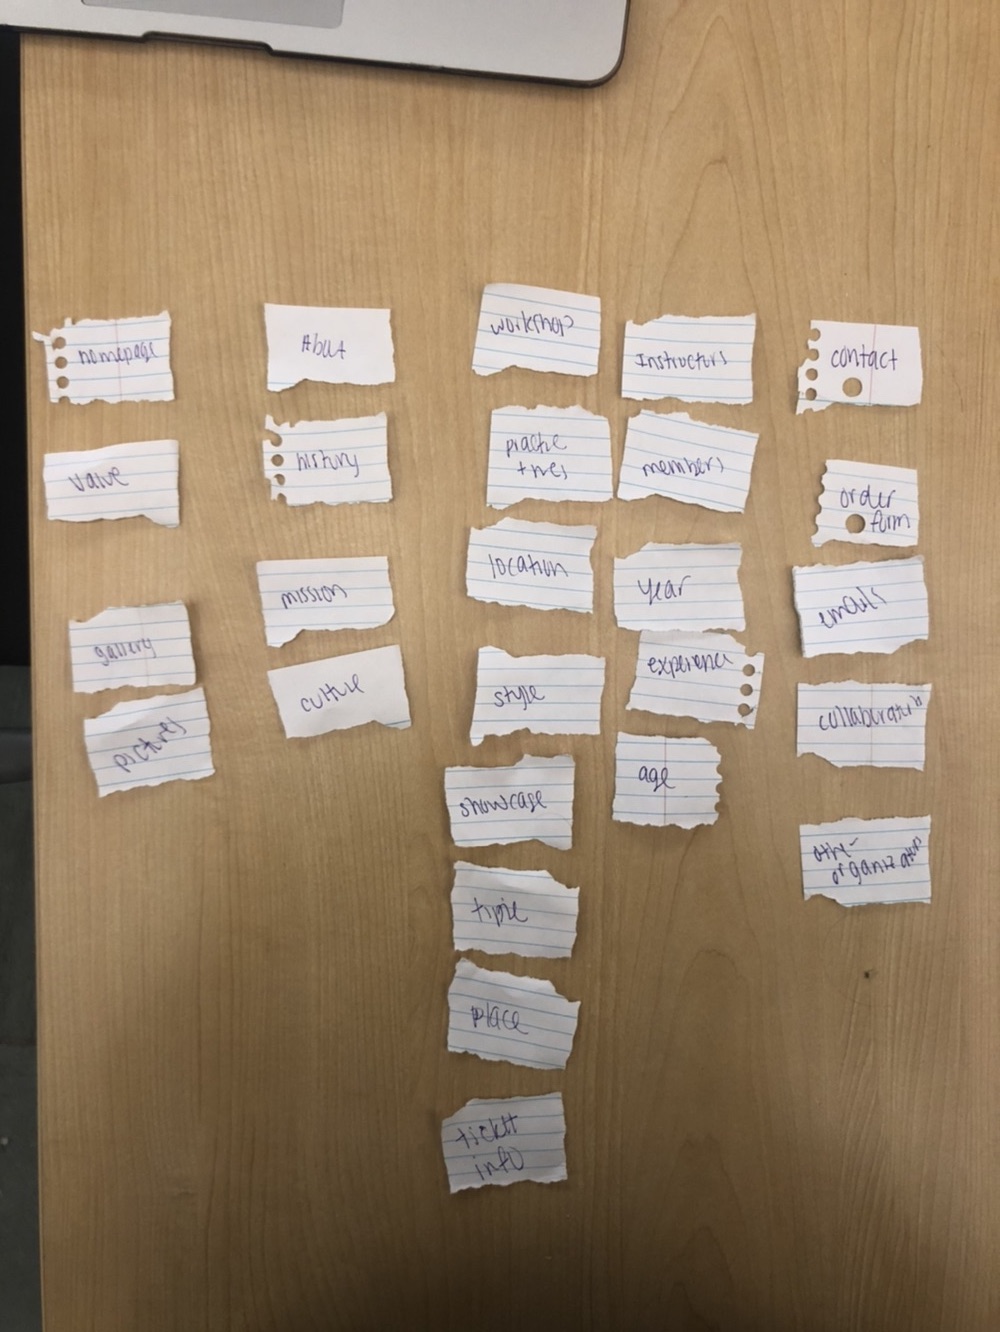 homepage
value
gallery
pictures
About
history
mission
culture
workshop
practice
times
location
style
showcase
time
place
ticket
info
Instructors
members
year
experience
age
contact
order
form
emails
collaborations
other
organizations